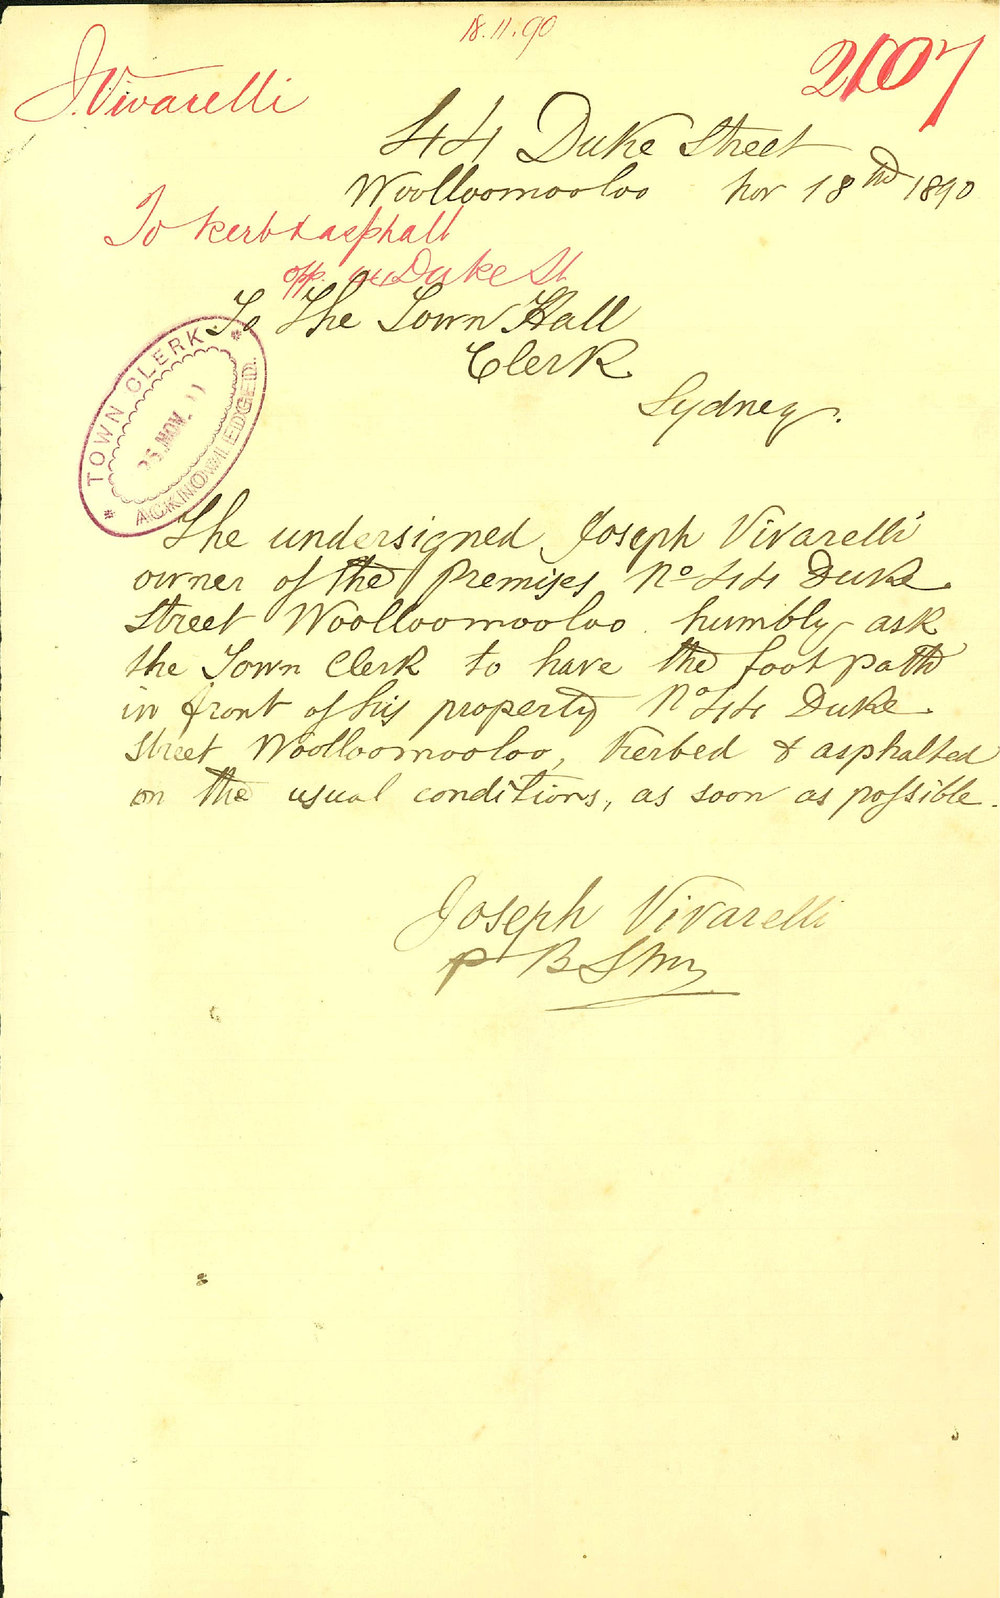 18.11.90
J. Vivarelli
2107
44 Duke Street
Woolloomooloo Nov 18th 1890
To Kerb & asphalt
opp. 44 Duke St
To The Town Hall
Clerk
Sydney.
TOWN CLERK
25 NOV.
ACKNOWLEDGED.
The undersigned Joseph Vivarelli
owner of the Premises No 44 Duke
Street Woolloomooloo humbly ask
the Town Clerk to have the foot path
in front of his property No 44 Duke
Street Woolloomooloo, Kerbed & asphalted
on the usual conditions, as soon as possible.
Joseph Vivarelli
p B